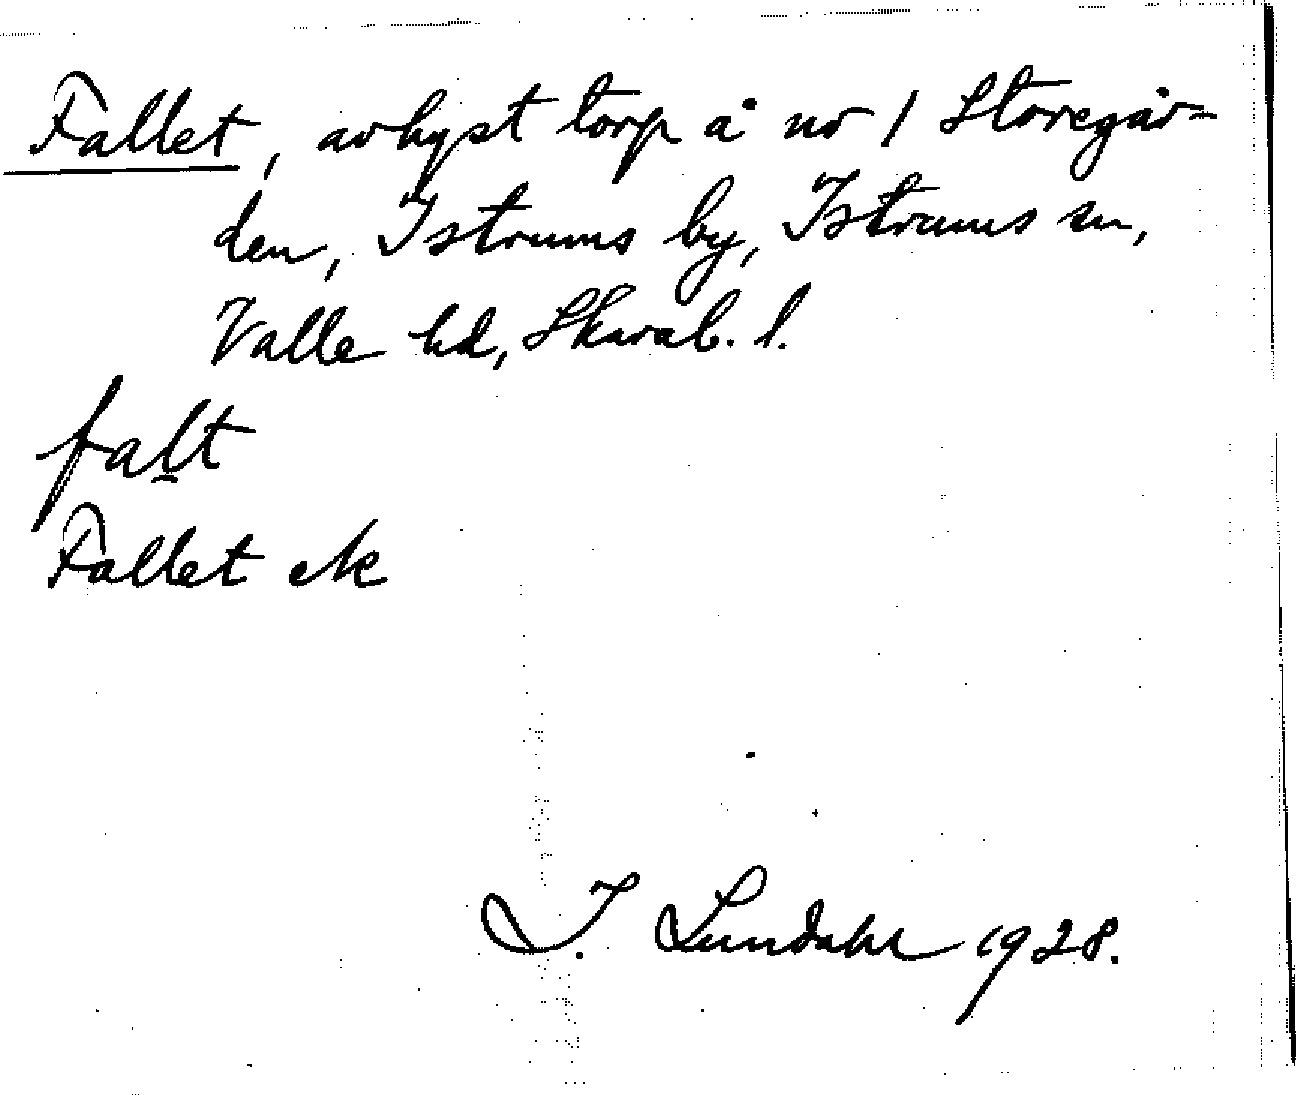 Fallet, avhyst torp å nr 1 Storegår-
den, Istrums by, Istrums sn,
Valle hd, Skarab. l.
fal̠t
Fallet ek
I. Lundahl 1928.